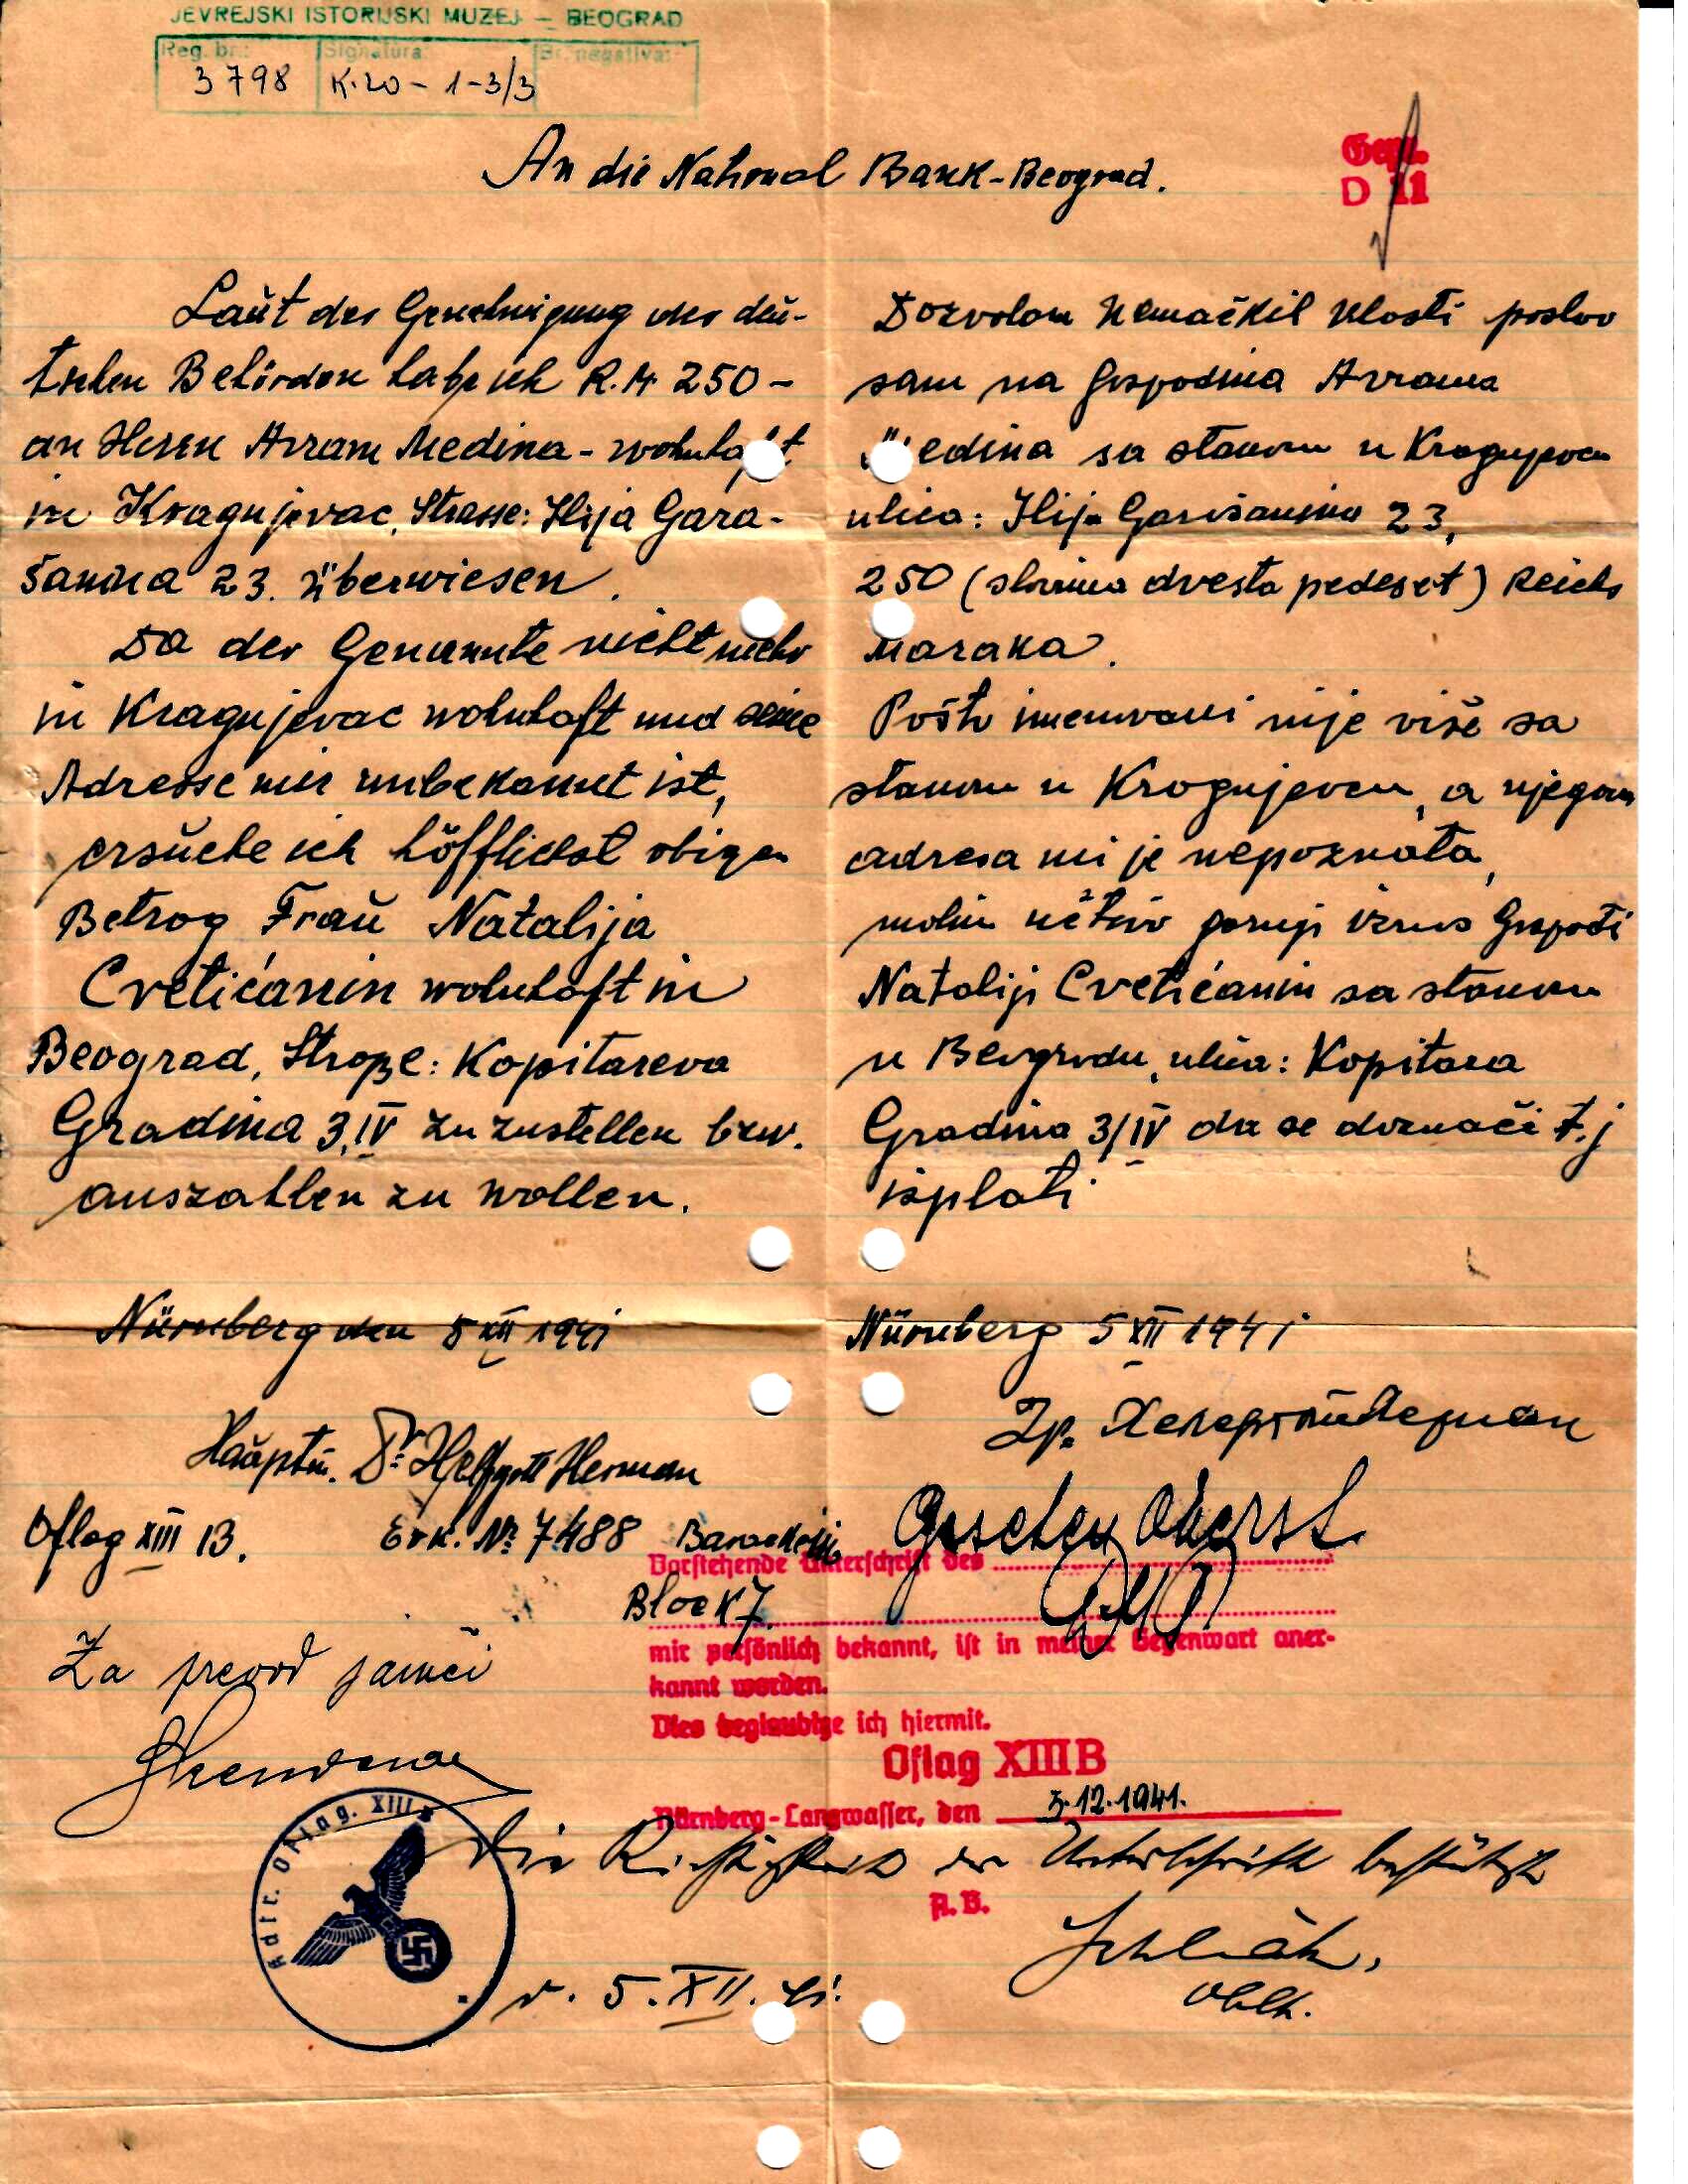 JEVREJSKI ISTORIJSKI MUZEJ – BEOGRAD
Reg. br.: Signatura: Br. negativa:
3798 K.20-1-3/3
An die National Bank-Beograd.
Gepr.
D 11
Laut der Genehmigung der deu-
tschen Behörden habe ich R.M 250-
an Herrn Avram Medina - wohnhaft
in Kragujevac, Strasse: Ilija Gara-
šanina 23. überwiesen.
Da der Genannte nicht mehr
in Kragujevac wohnhaft und seine
Adresse mir unbekannt ist,
ersuche ich höfflichst obigen
Betrag Frau Natalija
Cvetićanin wohnhaft in
Beograd, Straße: Kopitareva
Gradina 3.IV zu zustellen bzw.
auszahlen zu wollen.
Nürnberg den 5 XII 1941
Hauptm. Dr. Helfgott Herman
Oflag XIII B. Erk. No 7488
Block 7.
Dozvolom Nemačkih vlasti poslao
sam na gospodina Avrama
Medina sa stanom u Kragujevcu
ulica: Ilije Garašanina 23,
250 (slovima dvesta pedeset) Reichs
maraka.
Pošto imenovani nije više sa
stanom u Kragujevcu, a njegova
adresa mi je nepoznata,
molim učtivo gornji iznos Gospođi
Nataliji Cvetićanin sa stanom
u Beogradu, ulica: Kopitara
Gradina 3/IV da se doznači t.j
isplati
Nürnberg 5 XII 1941
Gesehen Oberst
Vorstehende Unterschrift des
mir persönlich bekannt, ist in meiner Gegenwart aner-
kannt worden.
Dies beglaubige ich hiermit.
Oflag XIII B
Nürnberg-Langwasser, den 5.12.1941.
Za prevod jamči
Kdtr. Oflag. XIII B
Die Richtigkeit der Unterschrift bestätigt
A.B.
d. 5.XII.41.
Oblt.